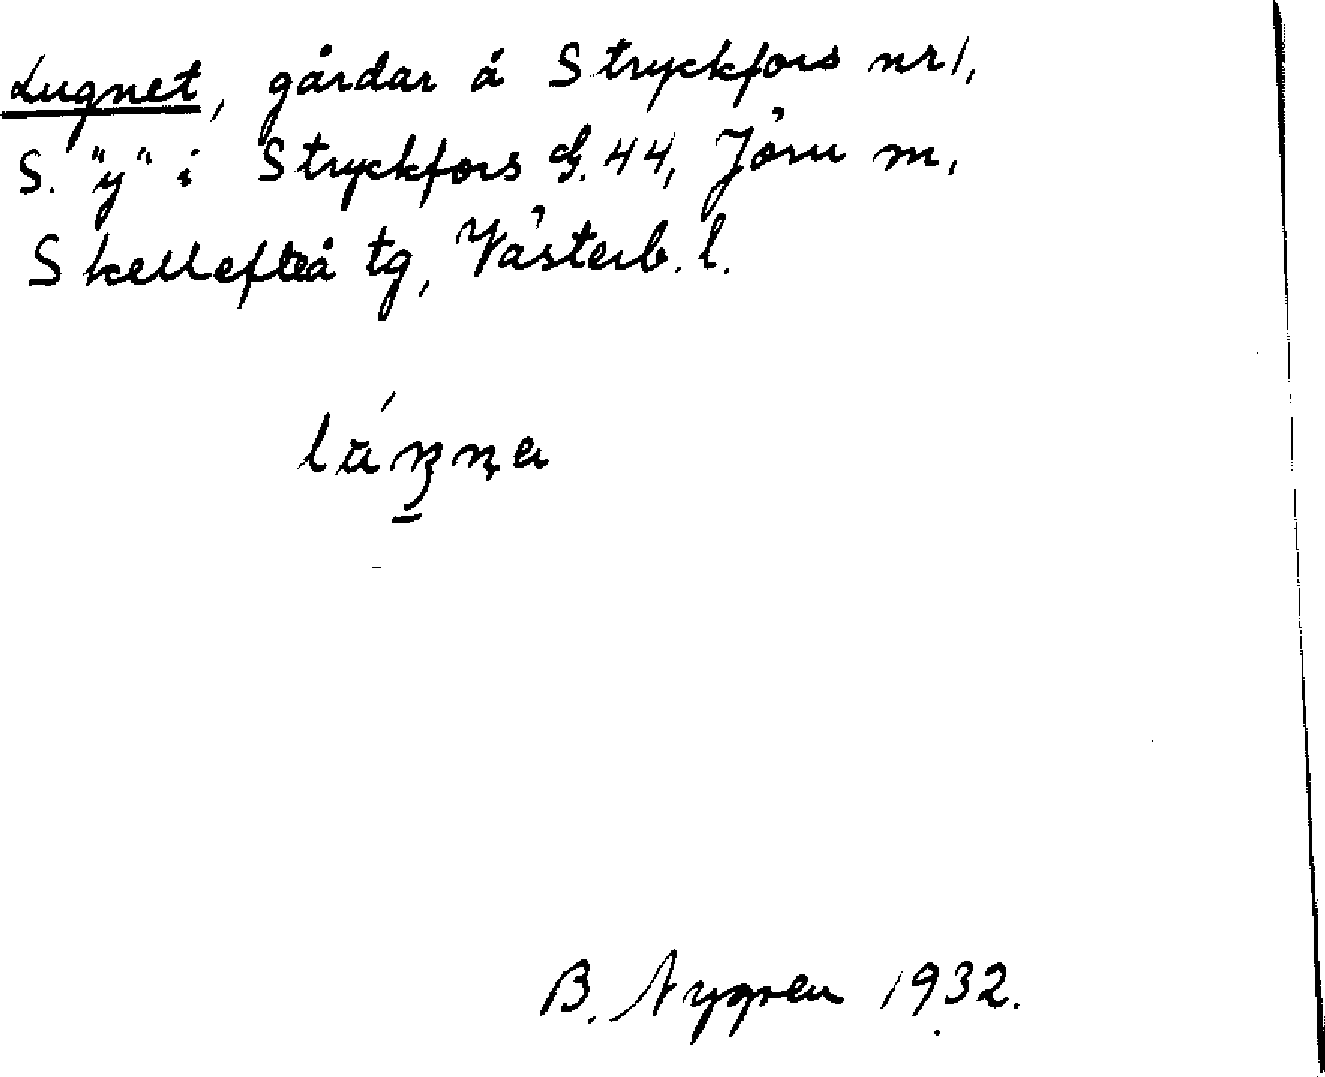 Lugnet, gårdar å Stryckfors nr 1,
S. "y" i Stryckfors G. 44, Jörn m,
Skellefteå tg, Västerb. l.
B. Nygren 1932.